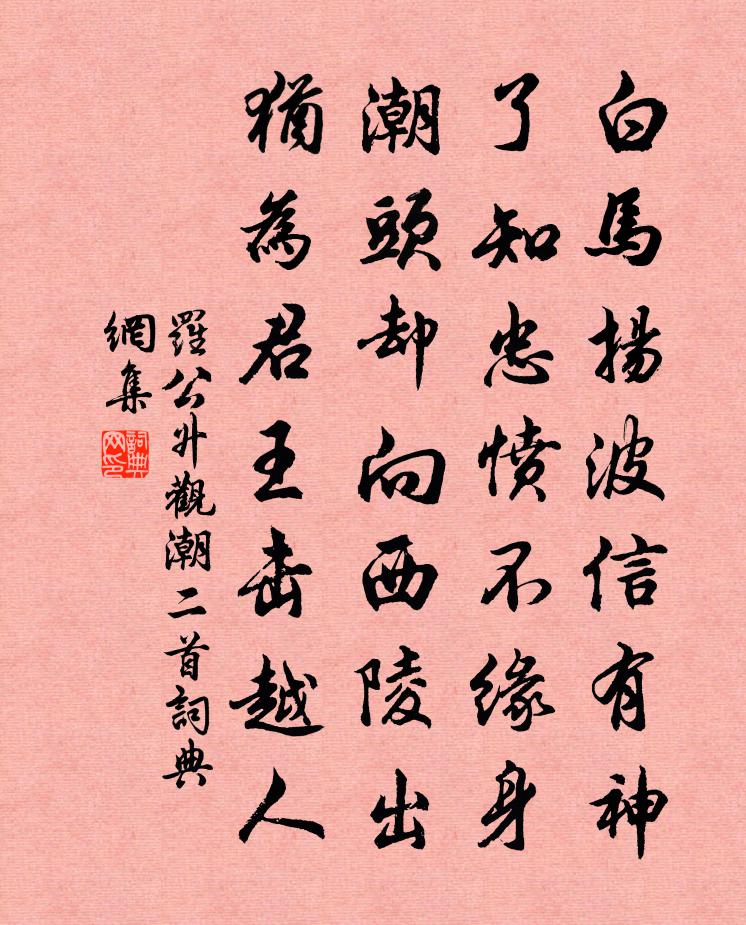 白馬揚波信有神
了知忠憤不緣身
潮頭却向西陵出
猶為君王击越人
羅公升觀潮二首詞典
網集
詞典
网印